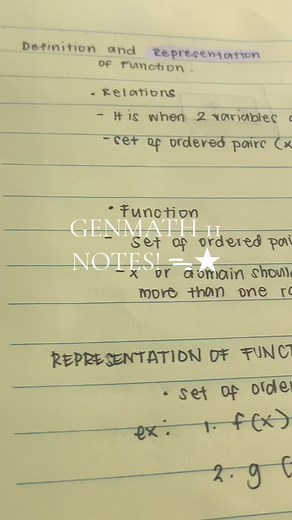 Definition and Representation
OF Function.
• Relations
- It is when 2 variables
- set of ordered pairs (x
• Function
GENMATH 11
- set of ordered pai
NOTES!
- x or domain shoul
more than one
REPRESENTATION OF FUNCT
• set of orde
ex: 1. f(x)
2. g